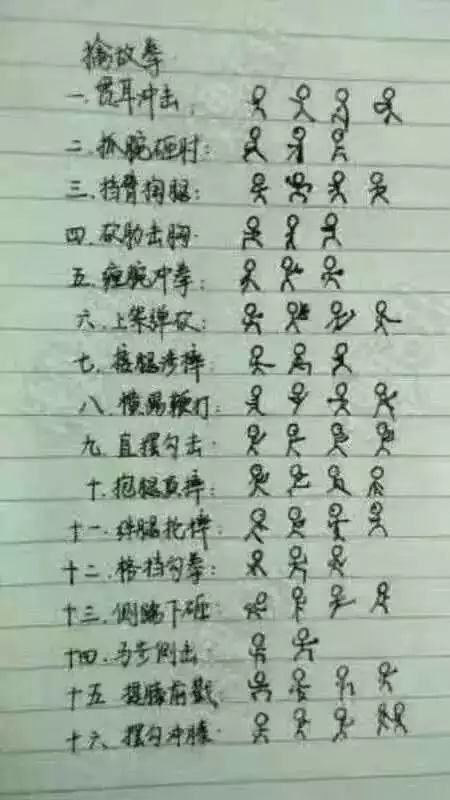 擒敌拳
一.贯耳冲击;
二.抓腕砸肘:
三.挡臂掏腿:
四.砍肋击胸·
五.缠腕冲拳;
六.上架弹砍:
七.接腿涉摔:
八.横踢鞭打:
九.直摆勾击·
十.抱腿顶摔:
十一.绊腿抡摔:
十二.格挡勾拳:
十三.侧踹下砸:
十四.马步侧击:
十五.提膝前戳:
十六.摆勾冲膝·